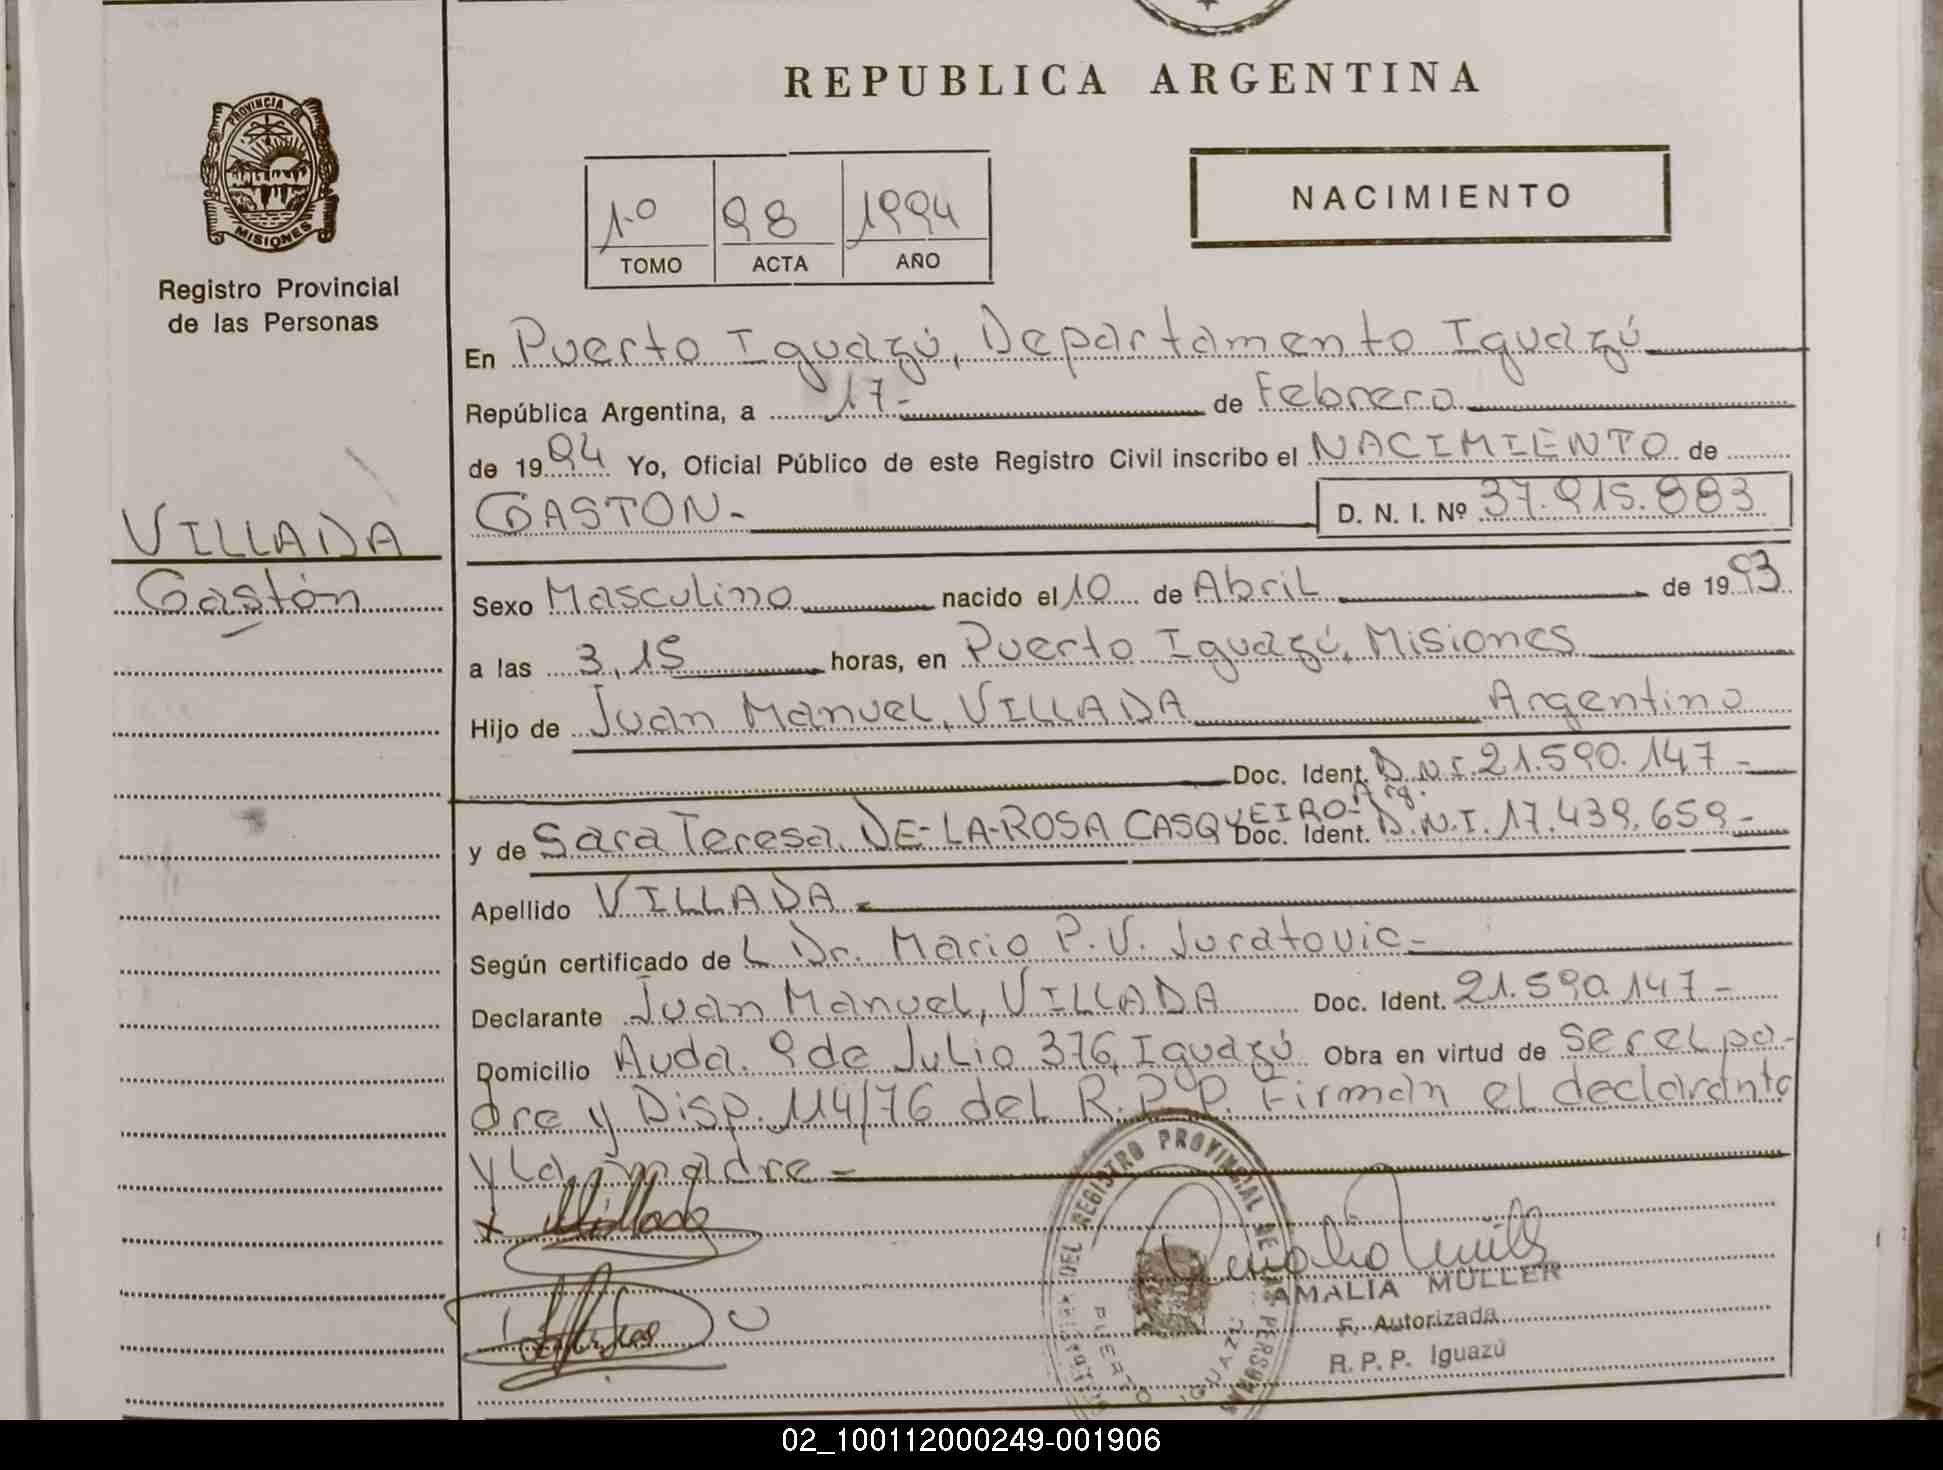 REPUBLICA ARGENTINA
PROVINCIA DE
MISIONES
Registro Provincial
de las Personas
1º 98 1994
TOMO ACTA AÑO
NACIMIENTO
En Puerto Iguazú, Departamento Iguazú
República Argentina, a 17- de Febrero
de 1994 Yo, Oficial Público de este Registro Civil inscribo el NACIMIENTO de
GASTON- D. N. I. Nº 37.915.883
VILLADA
Gastón
Sexo Masculino nacido el 10 de Abril de 1993
a las 3,15 horas, en Puerto Iguazú, Misiones
Hijo de Juan Manuel, VILLADA Argentino
Doc. Ident. D.N.I. 21.590.147-
y de Sara Teresa, DE-LA-ROSA CASQUEIRO- Arg. Doc. Ident. D.N.I. 17.439.659-
Apellido VILLADA-
Según certificado de L Dr. Mario P.V. Juratovic-
Declarante Juan Manuel, VILLADA Doc. Ident. 21.590.147-
Domicilio Avda. 9 de Julio 376, Iguazú Obra en virtud de ser el pa-
dre y Disp. 114/76 del R.P.P. Firman el declarante
y la madre-
DEL REGISTRO PROVINCIAL DE LAS PERSONAS
PUERTO IGUAZU
AMALIA MULLER
F. Autorizada
R. P. P. Iguazú
02_100112000249-001906